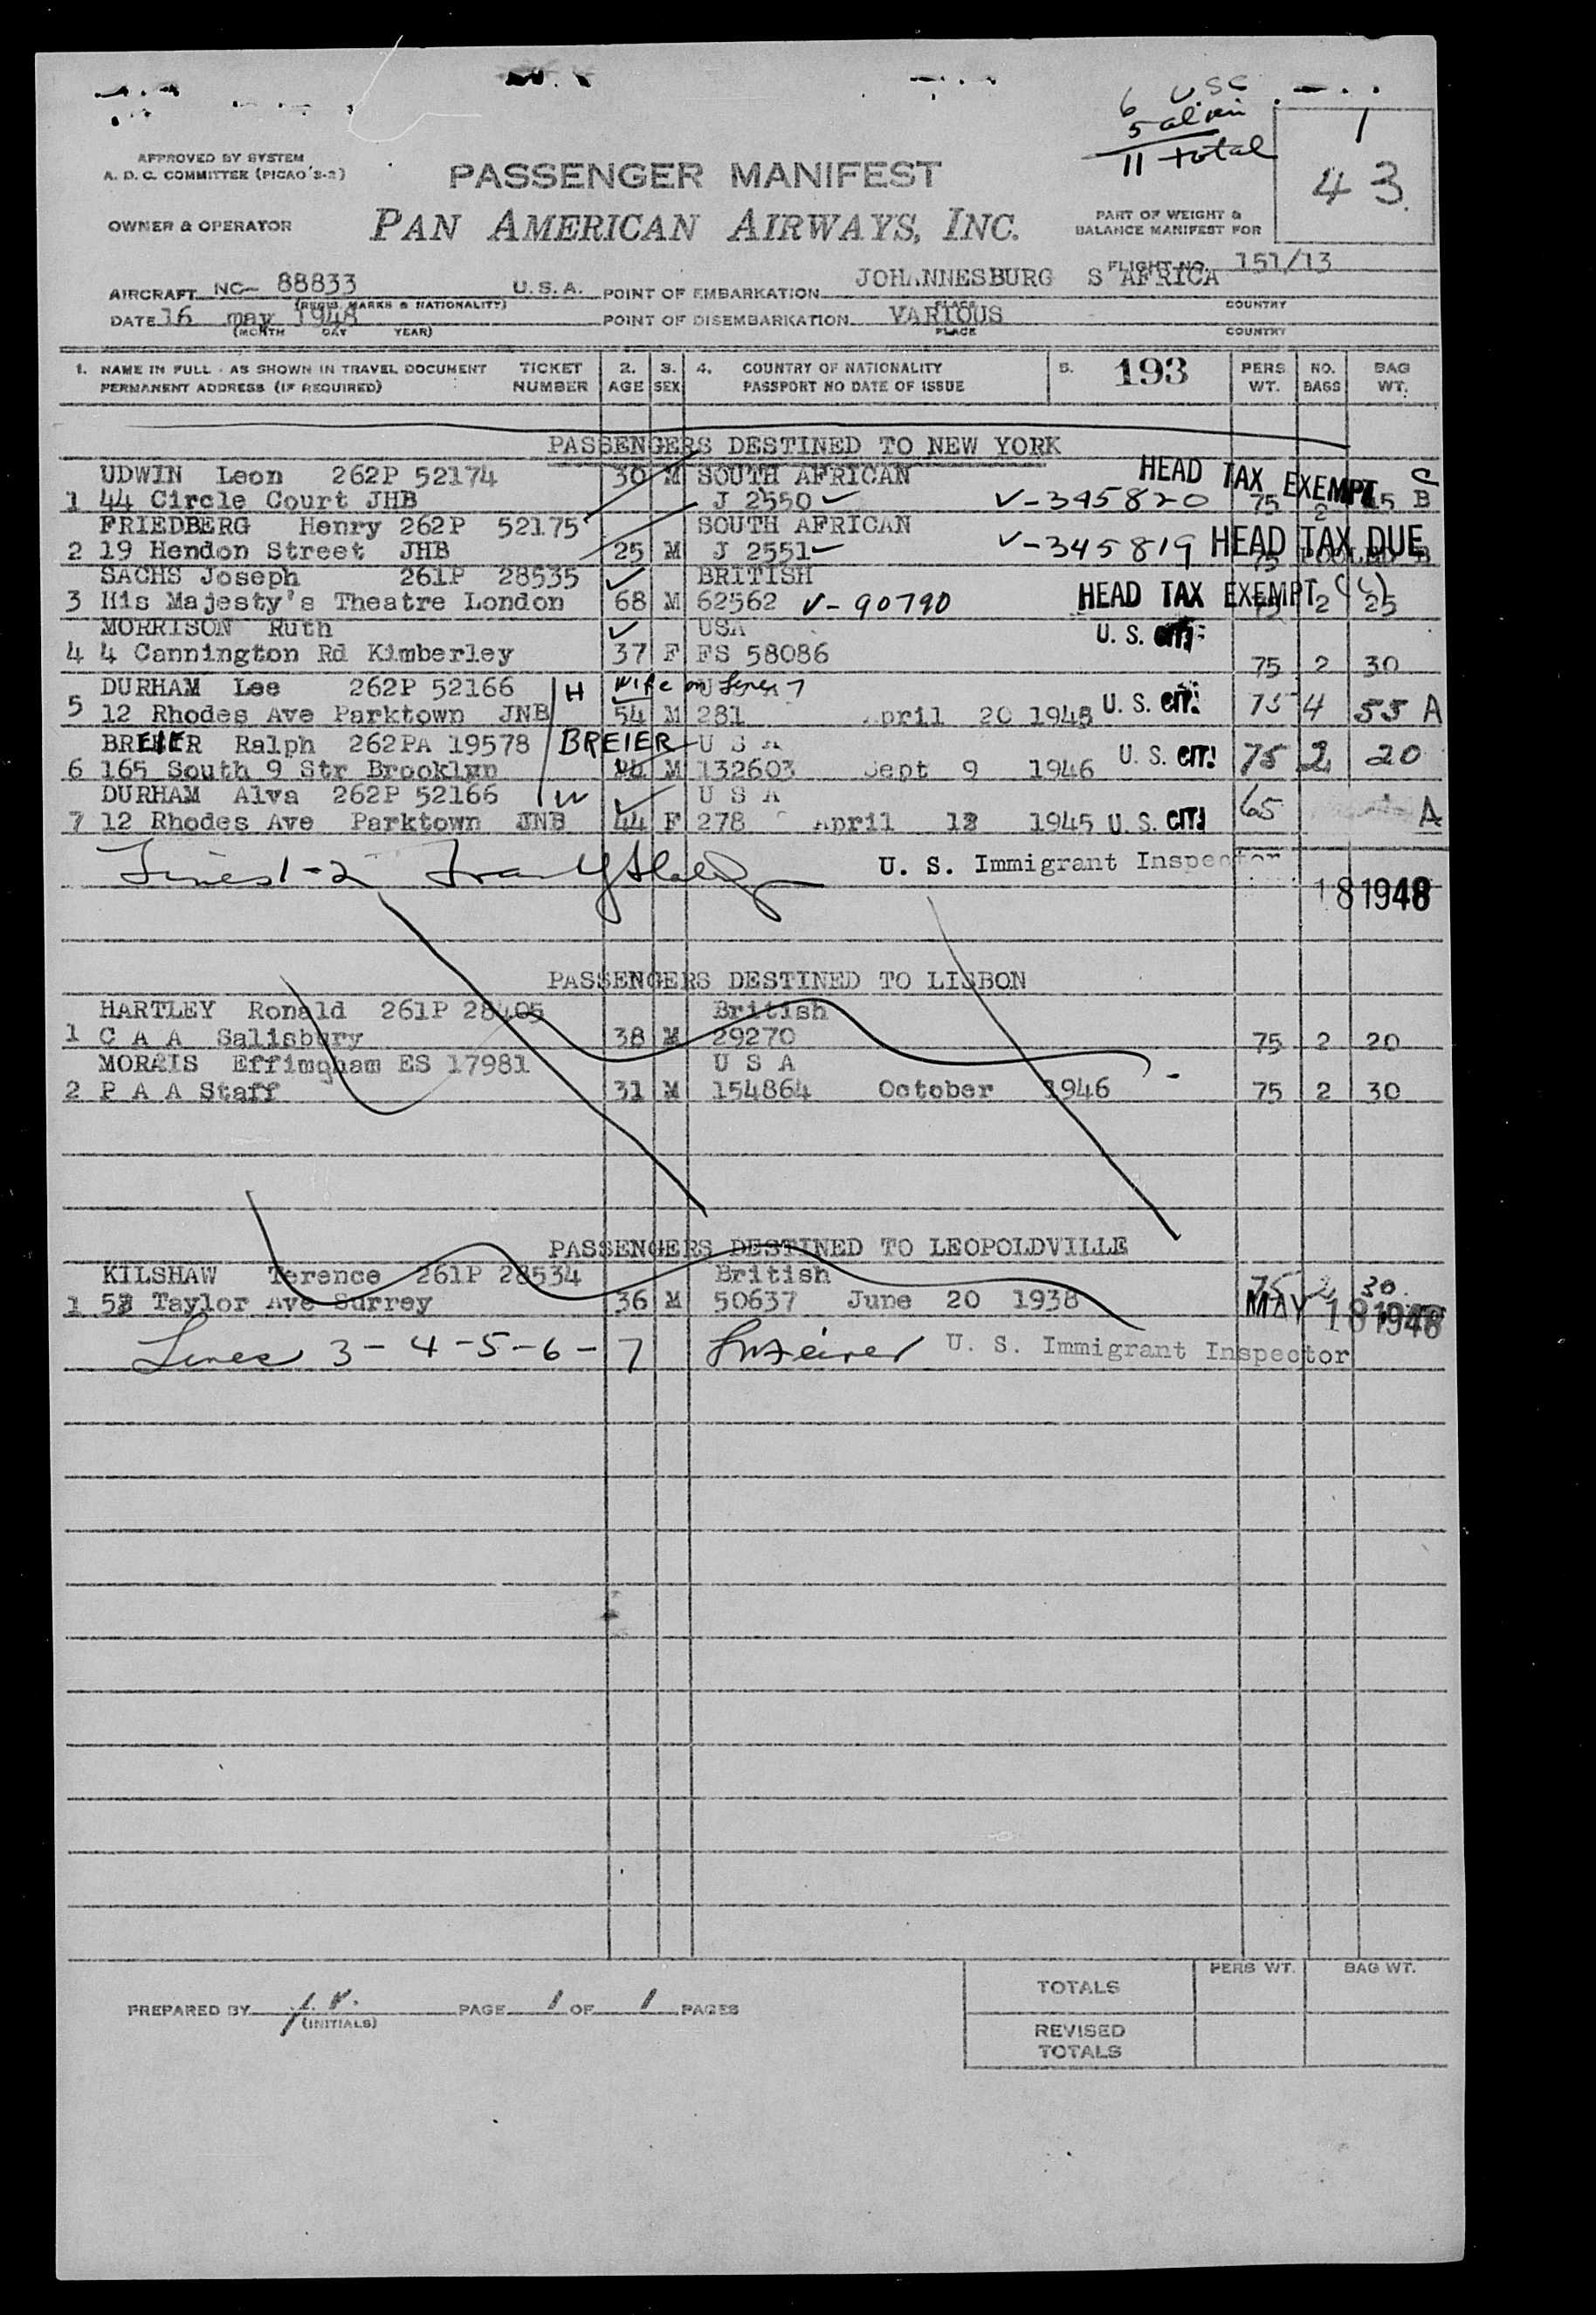 6 USC
5 alien
11 total
1
43.
APPROVED BY SYSTEM
A. D. C. COMMITTEE (PICAO S-2)
PASSENGER MANIFEST
OWNER & OPERATOR
PAN AMERICAN AIRWAYS, INC.
PART OF WEIGHT &
BALANCE MANIFEST FOR
FLIGHT NO. 151/13
AIRCRAFT NC- 88833 U.S.A. POINT OF EMBARKATION JOHANNESBURG S AFRICA
(REGIS. MARKS & NATIONALITY) PLACE COUNTRY
DATE 16 may 1948 POINT OF DISEMBARKATION VARIOUS
(MONTH DAY YEAR) PLACE COUNTRY
1. NAME IN FULL - AS SHOWN IN TRAVEL DOCUMENT TICKET 2. 3. 4. COUNTRY OF NATIONALITY 5. 193 PERS NO. BAG
PERMANENT ADDRESS (IF REQUIRED) NUMBER AGE SEX PASSPORT NO DATE OF ISSUE WT. BAGS WT.
PASSENGERS DESTINED TO NEW YORK
UDWIN Leon 262P 52174 30 M SOUTH AFRICAN HEAD TAX EXEMPT C
1 44 Circle Court JHB J 2550 V-345820 75 2 B
FRIEDBERG Henry 262P 52175 SOUTH AFRICAN
2 19 Hendon Street JHB 25 M J 2551 V-345819 HEAD TAX DUE 75
SACHS Joseph 261P 28535 BRITISH
3 His Majesty's Theatre London 68 M 62562 V-90790 HEAD TAX EXEMPT 2 25
MORRISON Ruth USA U. S. CIT.
4 4 Cannington Rd Kimberley 37 F FS 58086 75 2 30
DURHAM Lee 262P 52166 H wife on Line 7 U. S. CIT.
5 12 Rhodes Ave Parktown JNB 54 M 281 April 20 1948 75 4 55 A
BREIER Ralph 262PA 19578 BREIER U S A U. S. CIT.
6 165 South 9 Str Brooklyn M 132603 Sept 9 1946 75 2 20
DURHAM Alva 262P 52166 W U S A
7 12 Rhodes Ave Parktown JNB 44 F 278 April 1945 U. S. CIT. 65 A
Lines 1-2 U. S. Immigrant Inspector
18 1948
PASSENGERS DESTINED TO LISBON
HARTLEY Ronald 261P 28405 British
1 C A A Salisbury 38 M 29270 75 2 20
MORRIS Effimgham ES 17981 U S A
2 P A A Staff 31 M 154864 October 1946 75 2 30
PASSENGERS DESTINED TO LEOPOLDVILLE
KILSHAW Terence 261P 28534 British 75 2 30.
1 Taylor Ave Surrey 36 M 50637 June 20 1938 MAY 18 1948
Lines 3-4-5-6-7 U. S. Immigrant Inspector
PERS WT. BAG WT.
TOTALS
PREPARED BY (INITIALS) PAGE 1 OF 1 PAGES
REVISED
TOTALS